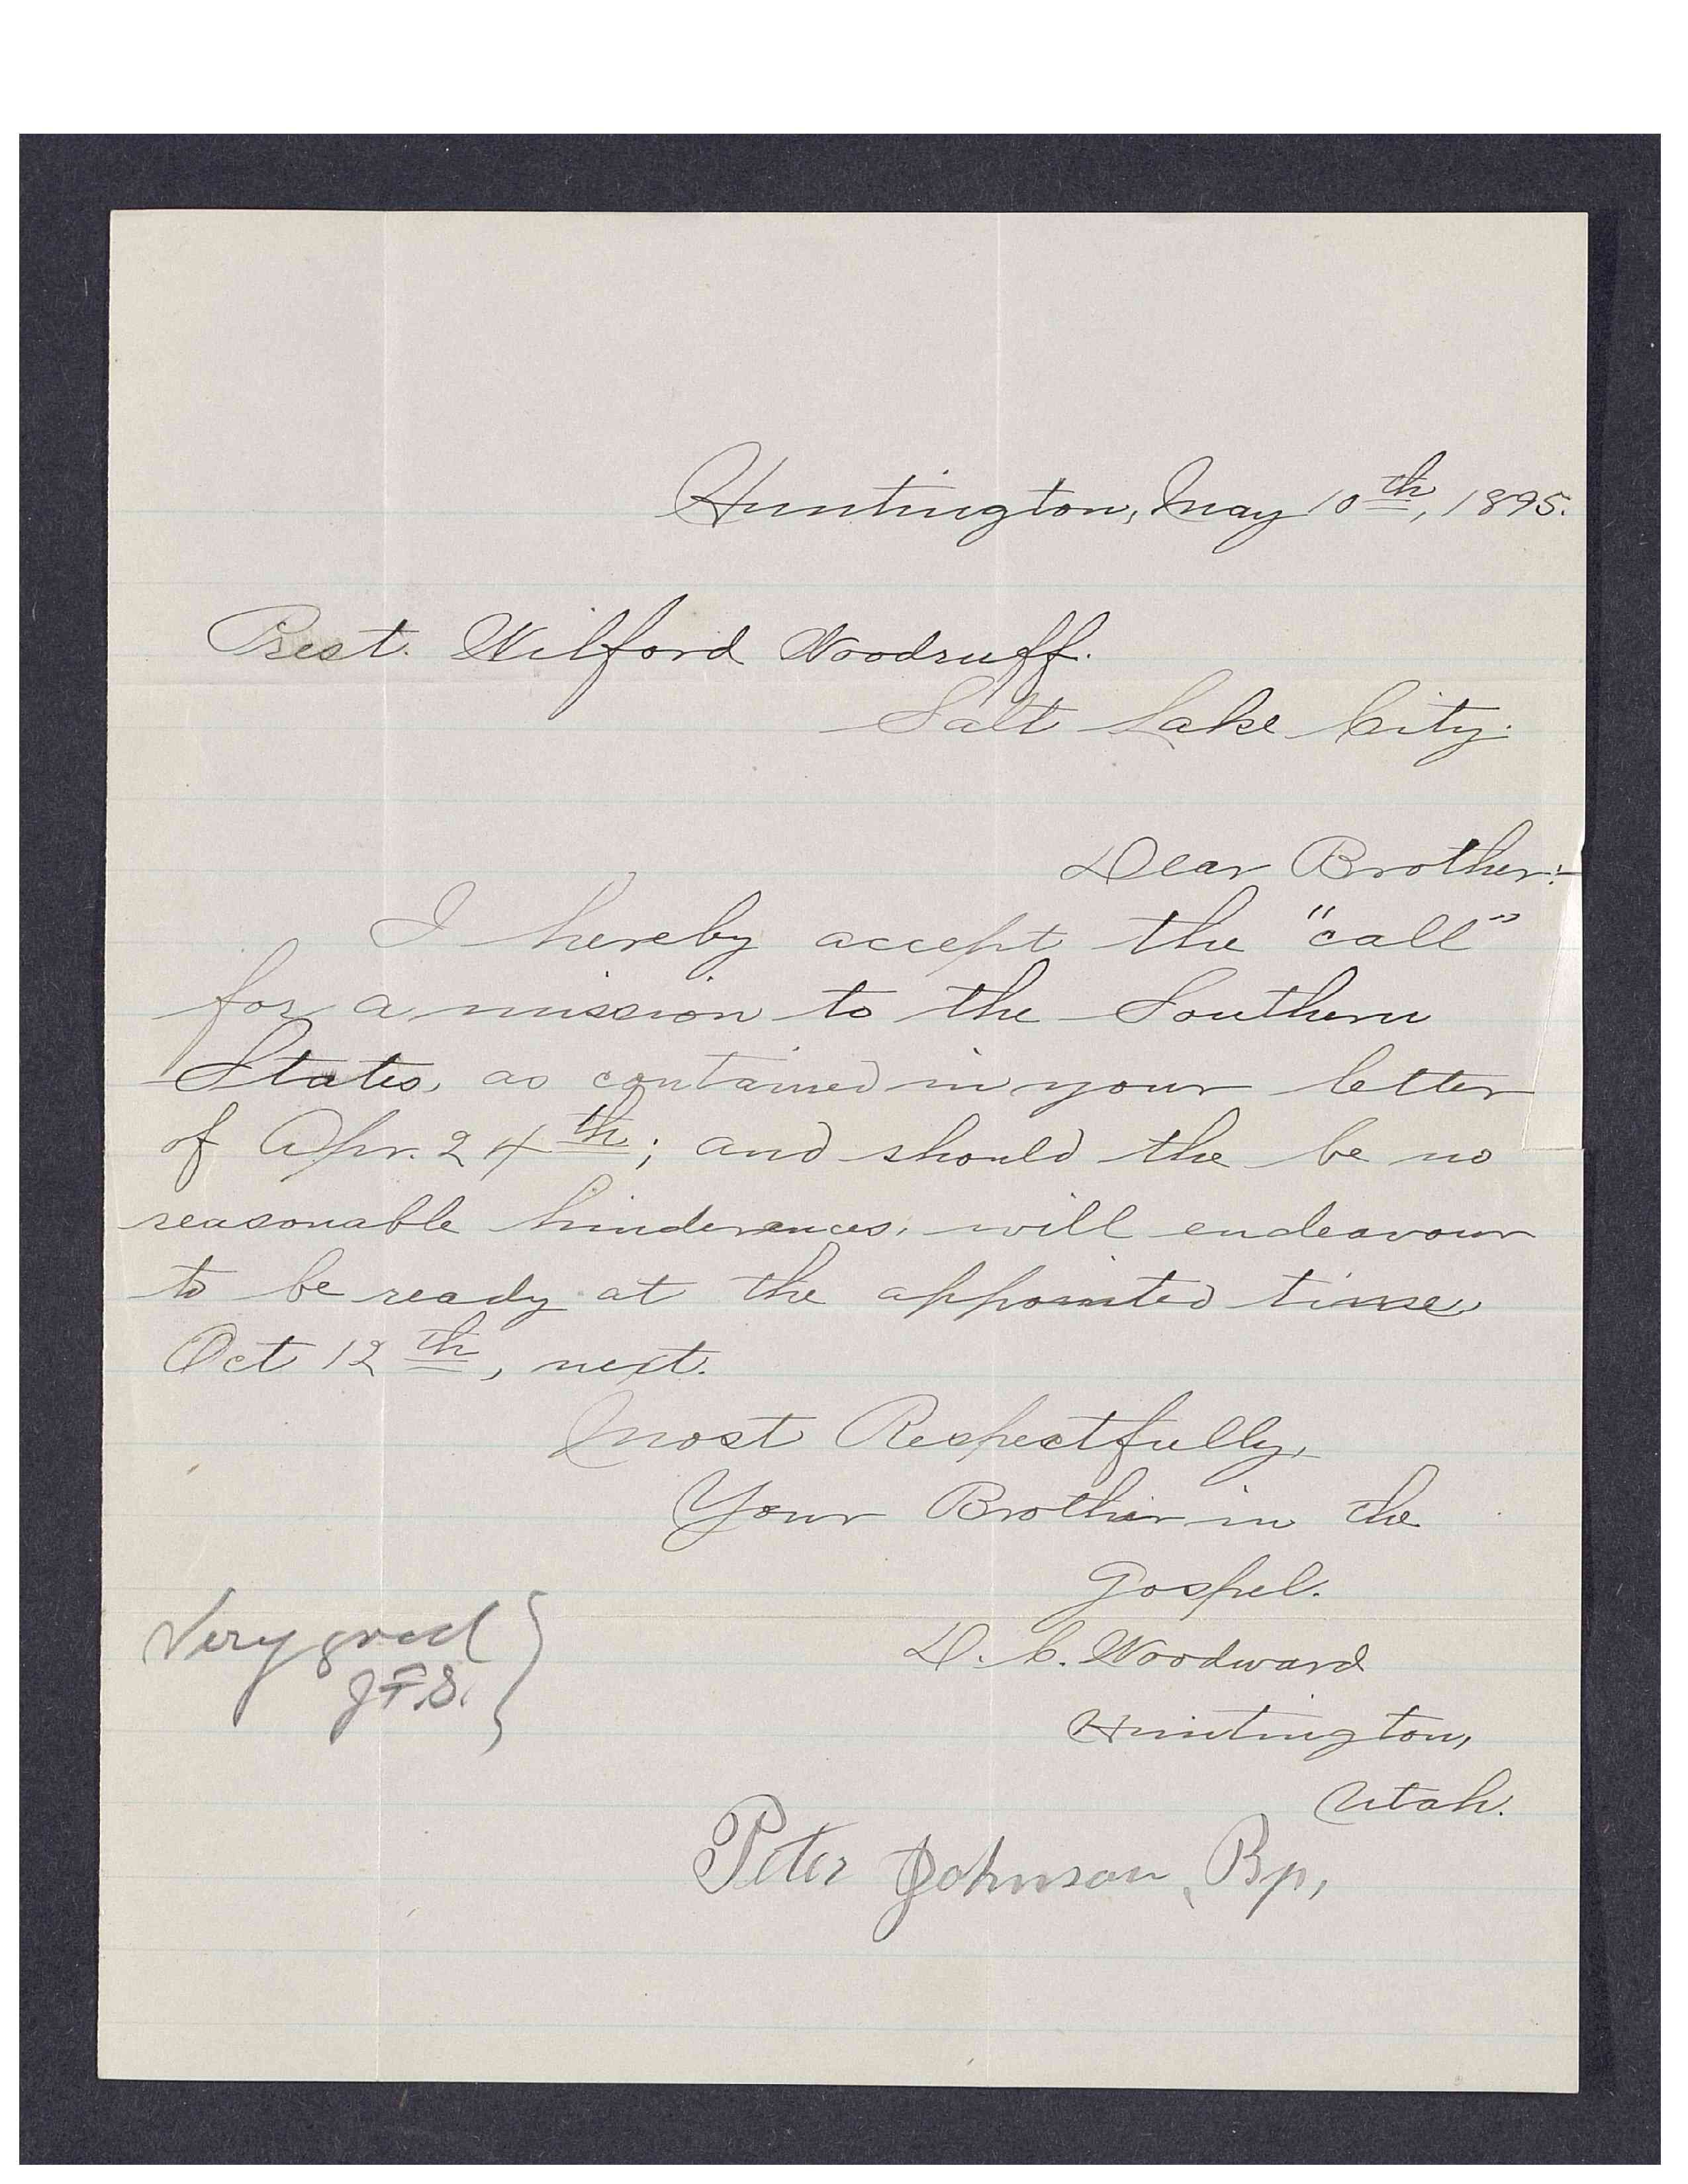 Huntington, May 10th, 1895.
Prest. Wilford Woodruff.
Salt Lake City.
Dear Brother:-
I hereby accept the "call"
for a mission to the Southern
States, as contained in your letter
of Apr. 24th; and should the be no
reasonable hinderances, will endeavour
to be ready at the appointed time,
Oct 12th, next.
Most Respectfully,
Your Brother in the
Gospel.
D. C. Woodward
Huntington,
Utah.
Very good
J.F.S.
Peter Johnson, Bp,